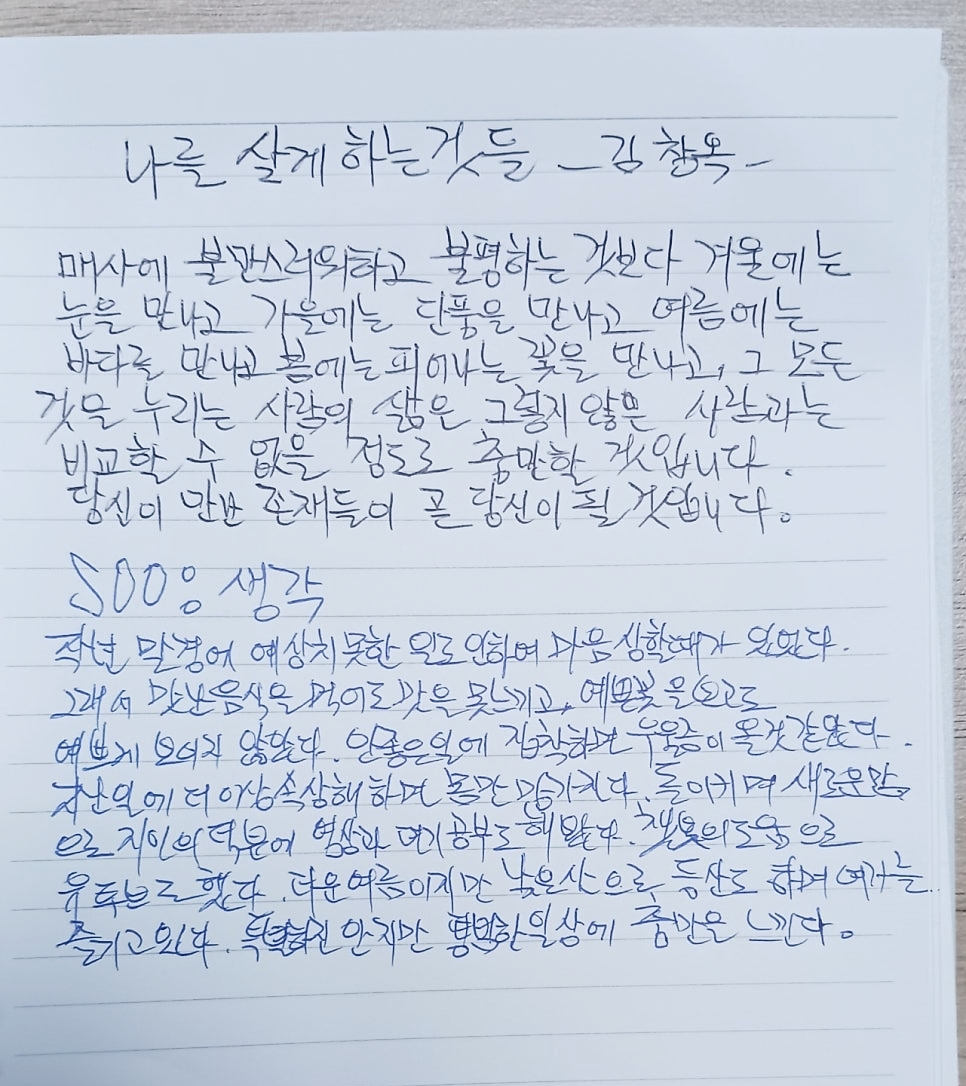 나를 살게 하는것들 - 김창옥 -
매사에 불만스러워하고 불평하는 것보다 겨울에는
눈을 만나고 가을에는 단풍을 만나고 여름에는
바다를 만나고 봄에는 피어나는 꽃을 만나고, 그 모든
것을 누리는 사람의 삶은 그렇지 않은 사람과는
비교할 수 없을 정도로 충만할 것입니다.
당신이 만난 존재들이 곧 당신이 될 것입니다.
SOO응 생각
작년 말경에 예상치못한 일로인하여 마음상할때가 있었다.
그래서 맛난음식을 먹어도 맛을 못느끼고, 예쁜꽃을 보고도
예쁘게 보이지 않았다. 안좋은일에 집착하면 우울증이 올것같았다.
지난일에 더이상 속상해 하면 몸만 망가진다. 돌이키며 새로운맘
으로 지인의 덕분에 영상과 연기공부도 해봤다. 챗봇의도움으로
유튜브도 했다. 더운여름이지만 낮은산으로 등산도 하며 여가를
즐기고있다. 특별하진 안지만 평범한일상에 충만은 느낀다.